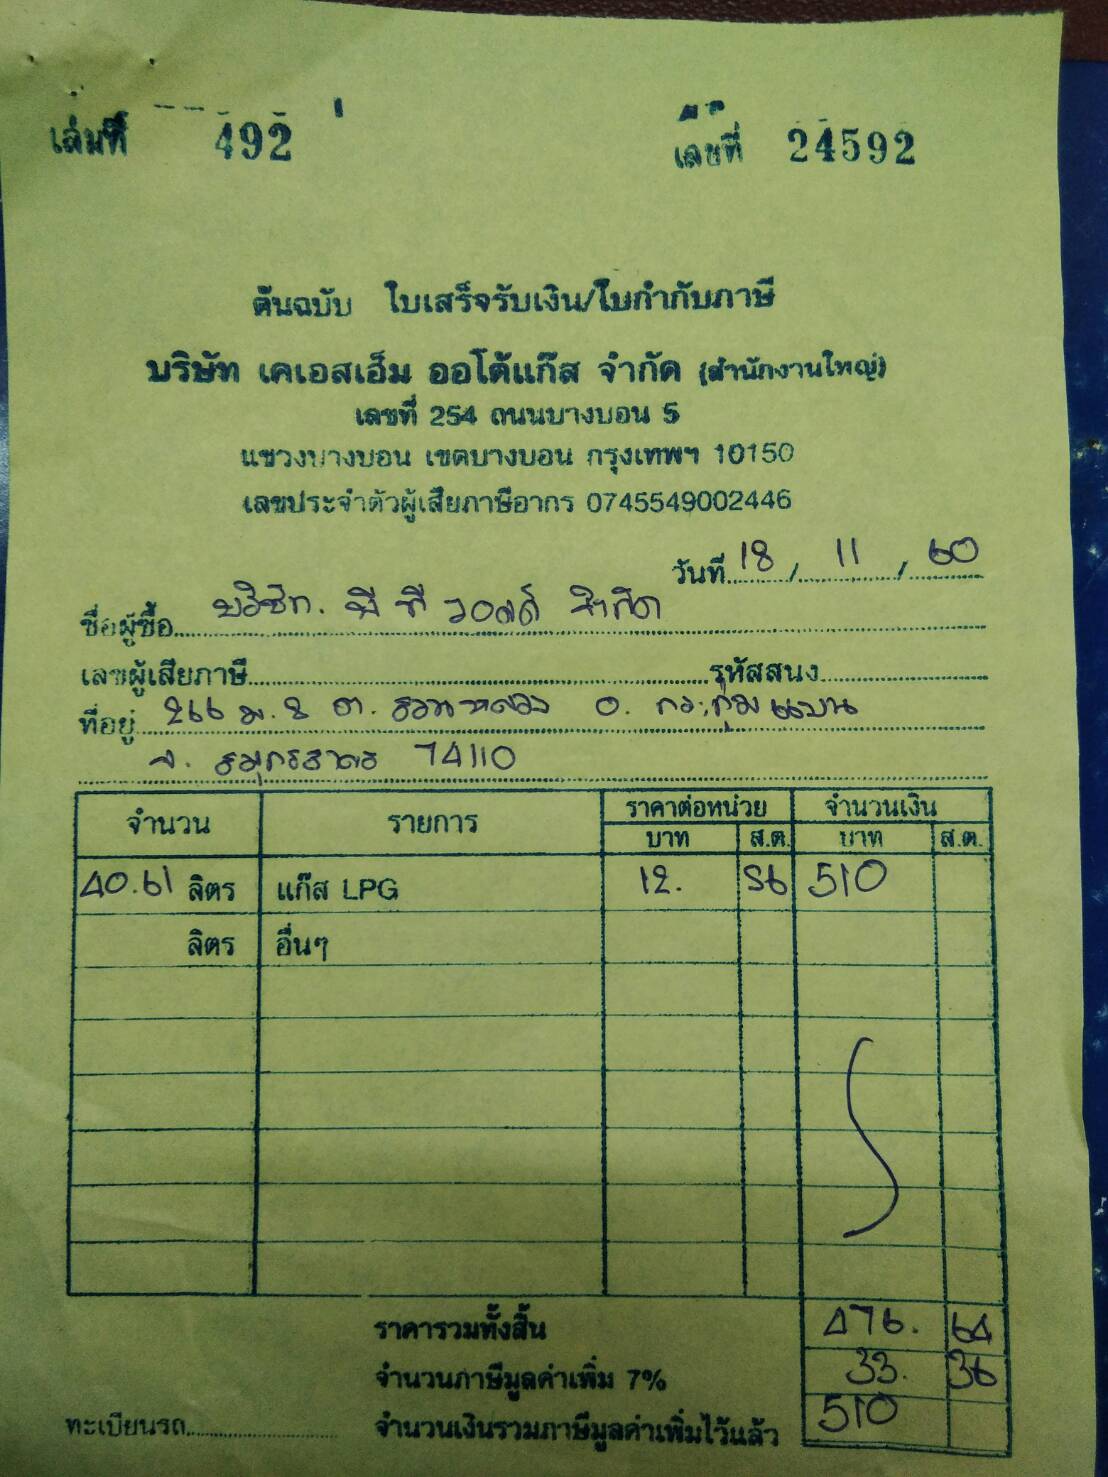 เล่มที่ 492 เลขที่ 24592
ต้นฉบับ ใบเสร็จรับเงิน/ใบกำกับภาษี
บริษัท เคเอสเอ็ม ออโต้แก๊ส จำกัด (สำนักงานใหญ่)
เลขที่ 254 ถนนบางบอน 5
แขวงบางบอน เขตบางบอน กรุงเทพฯ 10150
เลขประจำตัวผู้เสียภาษีอากร 0745549002446
วันที่ 18 / 11 / 60
ชื่อผู้ซื้อ บริษัท. พี ที จำกัด
เลขผู้เสียภาษี รหัสสนง.
ที่อยู่ 266 ม. 8 ต. สวนหลวง อ. กระทุ่มแบน
จ. สมุทรสาคร 74110
จำนวน รายการ ราคาต่อหน่วย จำนวนเงิน
บาท ส.ต. บาท ส.ต.
40.61 ลิตร แก๊ส LPG 12. 56 510
ลิตร อื่นๆ
ราคารวมทั้งสิ้น 476. 64
จำนวนภาษีมูลค่าเพิ่ม 7% 33. 36
ทะเบียนรถ จำนวนเงินรวมภาษีมูลค่าเพิ่มไว้แล้ว 510